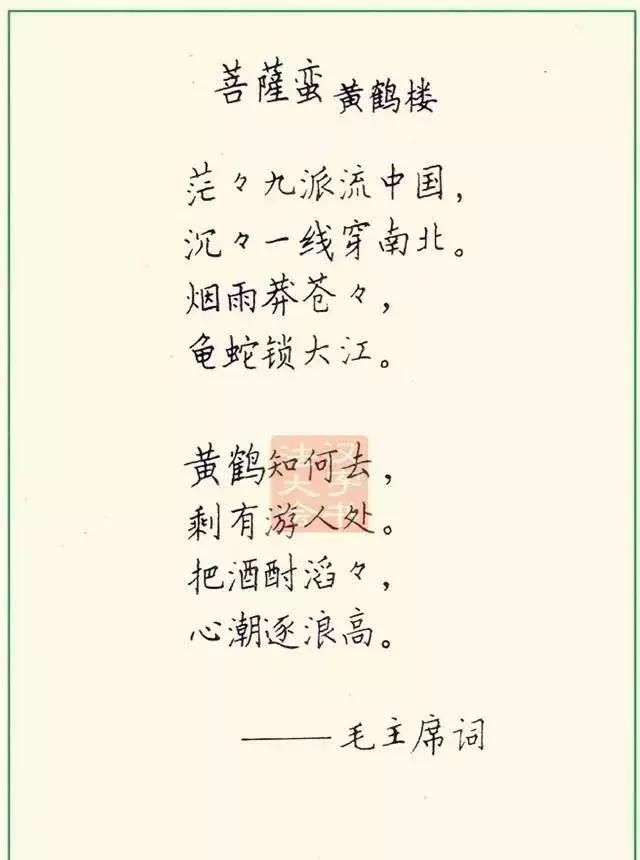 菩薩蛮 黄鹤楼
茫々九派流中国，
沉々一线穿南北。
烟雨莽苍々，
龟蛇锁大江。
黄鹤知何去，
剩有游人处。
把酒酎滔々，
心潮逐浪高。
——毛主席词
汉字书法大会